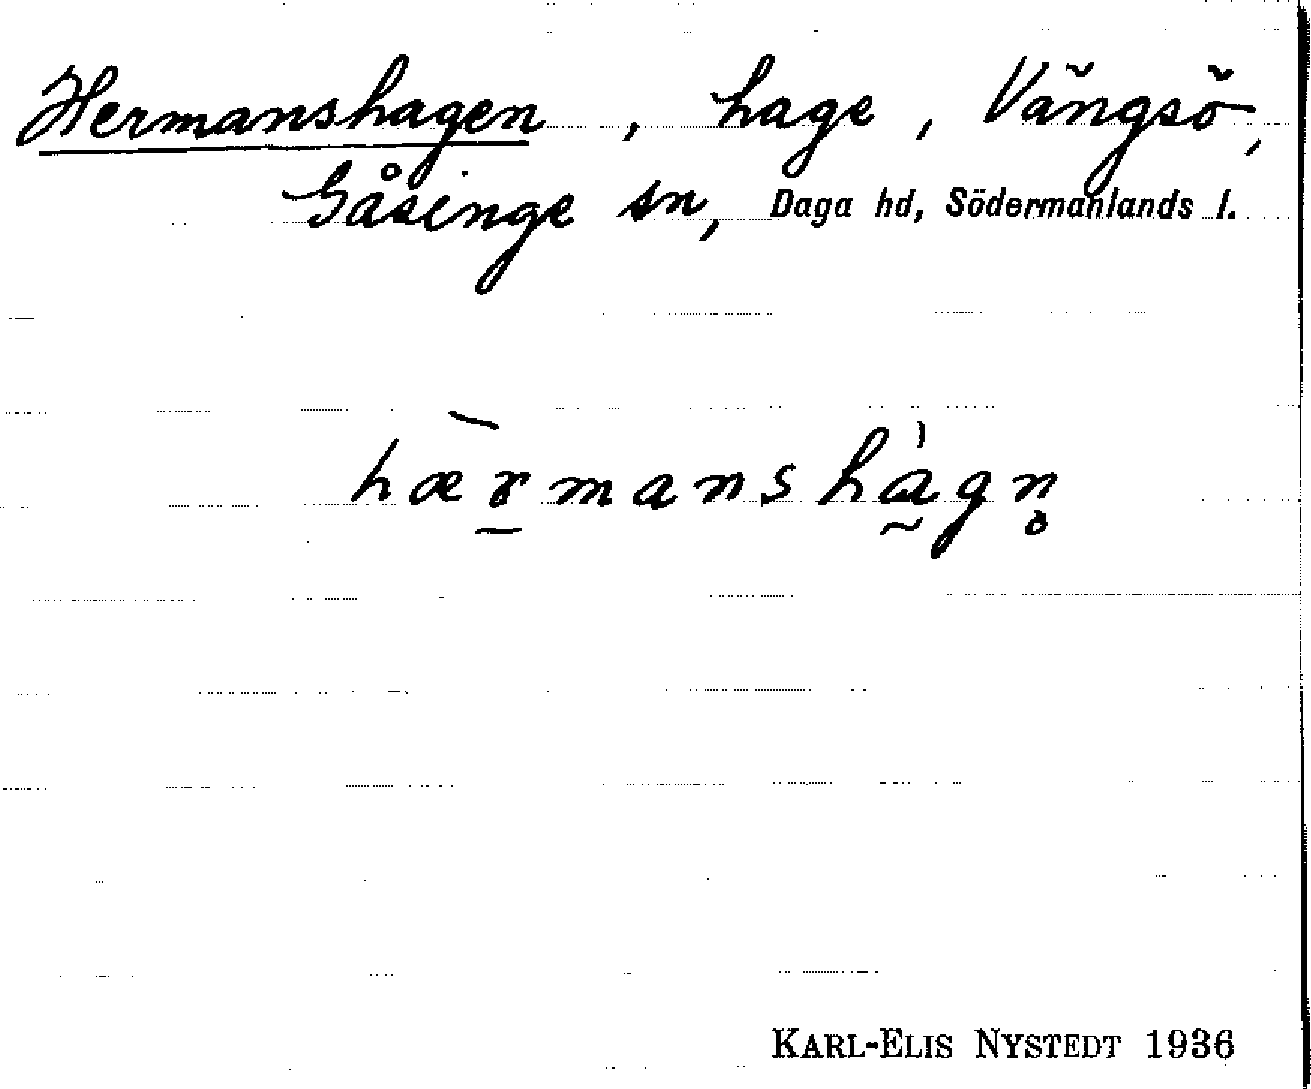 Hermanshagen, hage, Vängsö,
Gåsinge sn, Daga hd, Södermanlands l.
hærmanshàgn̥
KARL-ELIS NYSTEDT 1936